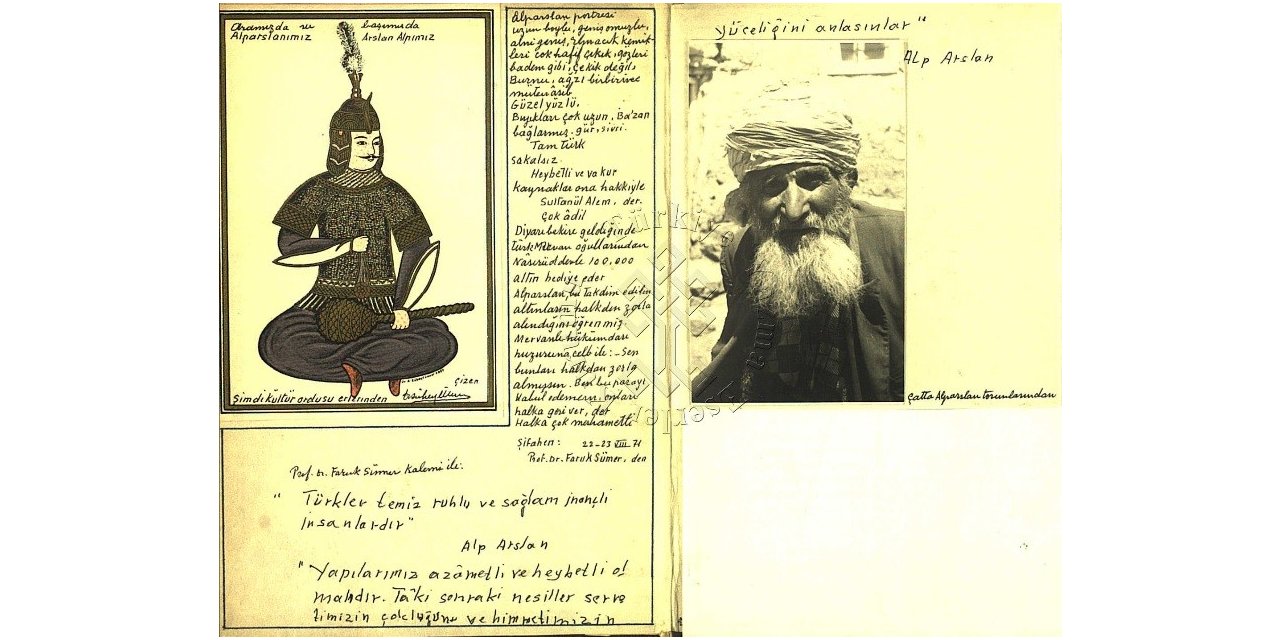 Aramızda ve başımızda
Alparslanımız Arslan Alpımız
Şimdi kültür ordusu erlerinden
çizen
Alparslan portresi
uzun boylu, geniş omuzlu,
alnı geniş, elmacık kemik-
leri çok hafif çıkık, gözleri
badem gibi, çekik değil,
Burnu, ağzı birbirine
mütenâsib
Güzel yüzlü,
Bıyıkları çok uzun, Ba'zan
bağlarmış. gür, sivri.
Tam türk
sakalsız.
Heybetli ve vakur
Kaynaklar ona hakkiyle
Sultanül Alem, der.
Çok âdil
Diyarıbekire geldiğinde
Türk Mervan oğullarından
Nâsırüddevle 100,000
altın hediye eder
Alparslan, bu takdim edilen
altınların halkdan zorla
alındığını öğrenmiş
Mervanlı hükümdarı
huzuruna celb ile: _ Sen
bunları halkdan zorla
almışsın. Ben bu parayı
Kabul edemem, onları
halka geri ver, der
Halka çok
Şifahen: 22-23 VIII 71
Prof. Dr. Faruk Sümer, den
Prof. Dr. Faruk Sümer Kalemi ile:
" Türkler temiz ruhlu ve sağlam inançlı
insanlardır"
Alp Arslan
"Yapılarımız azâmetli ve heybetli ol
malıdır. Tâki sonraki nesiller serve
timizin çokluğunu ve himmetimizin
yüceliğini anlasınlar"
Alp Arslan
Çatta Alparslan torunlarından